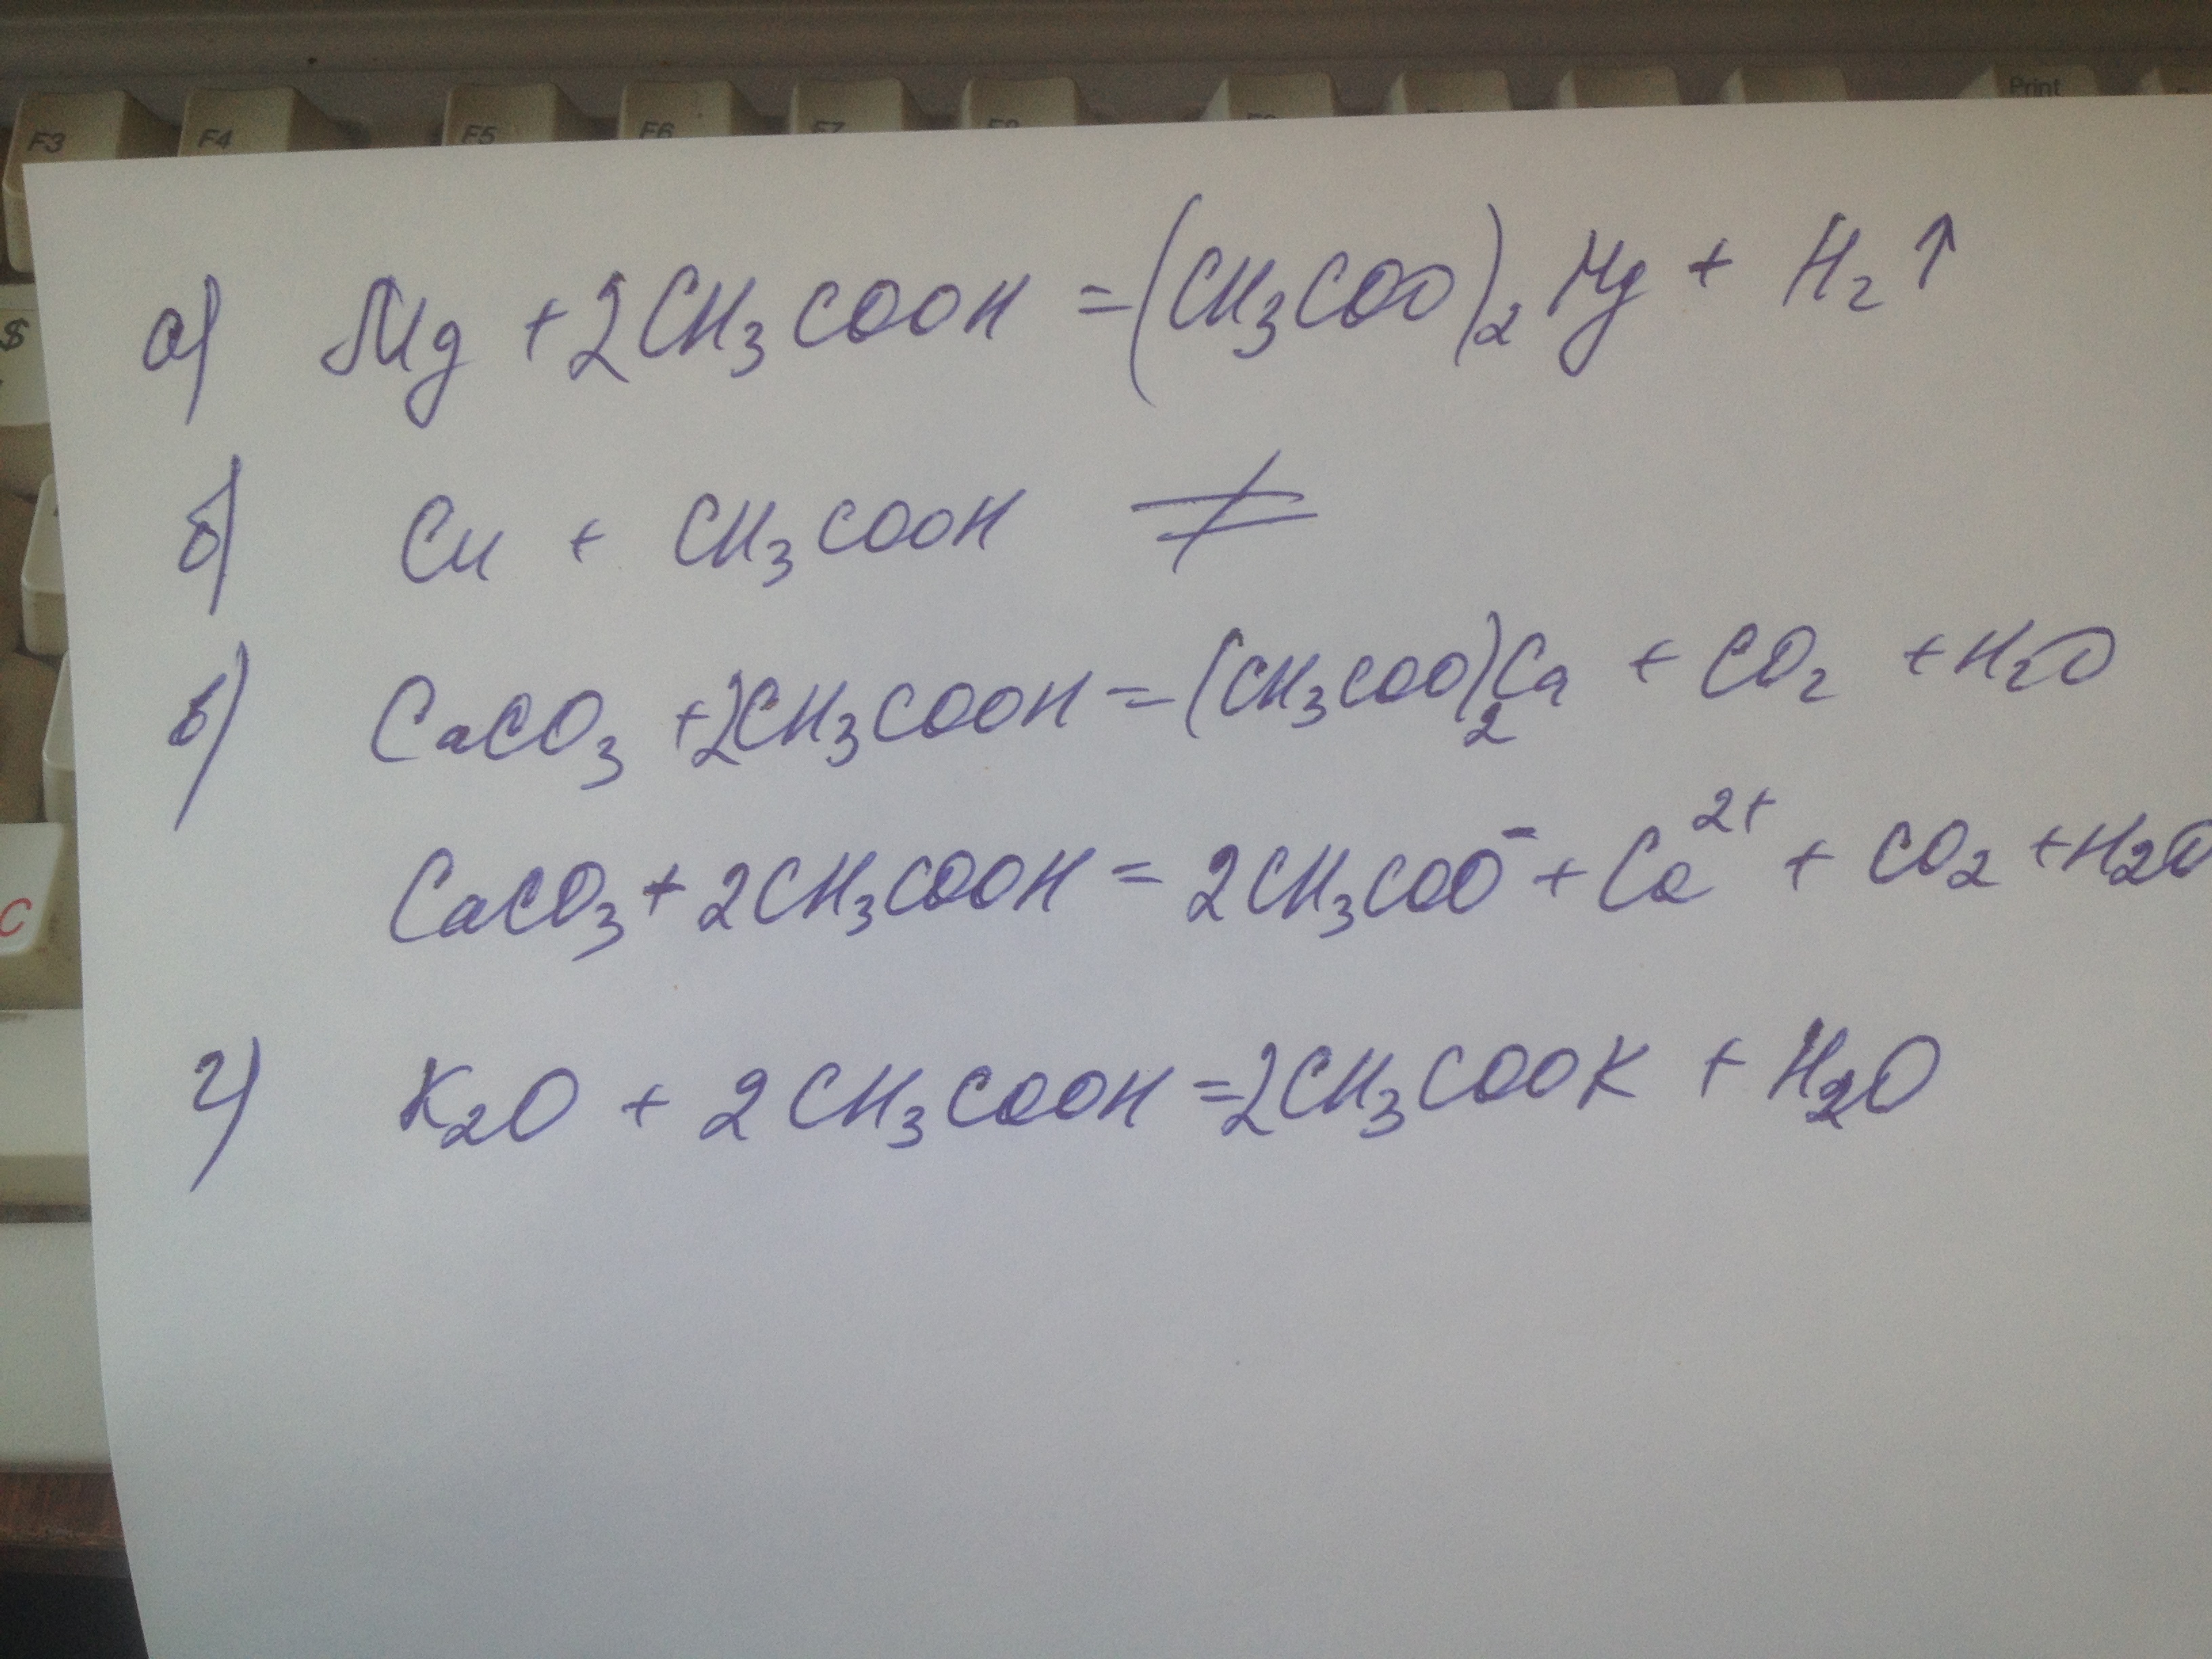 F3 F4 F5 F6 F7 F8 Print
$
а) Mg + 2CH₃COOH = (CH₃COO)₂Mg + H₂↑
б) Cu + CH₃COOH ≠
в) CaCO₃ + 2CH₃COOH = (CH₃COO)₂Ca + CO₂ + H₂O
CaCO₃ + 2CH₃COOH = 2CH₃COO⁻ + Ca²⁺ + CO₂ + H₂O
C
г) K₂O + 2CH₃COOH = 2CH₃COOK + H₂O